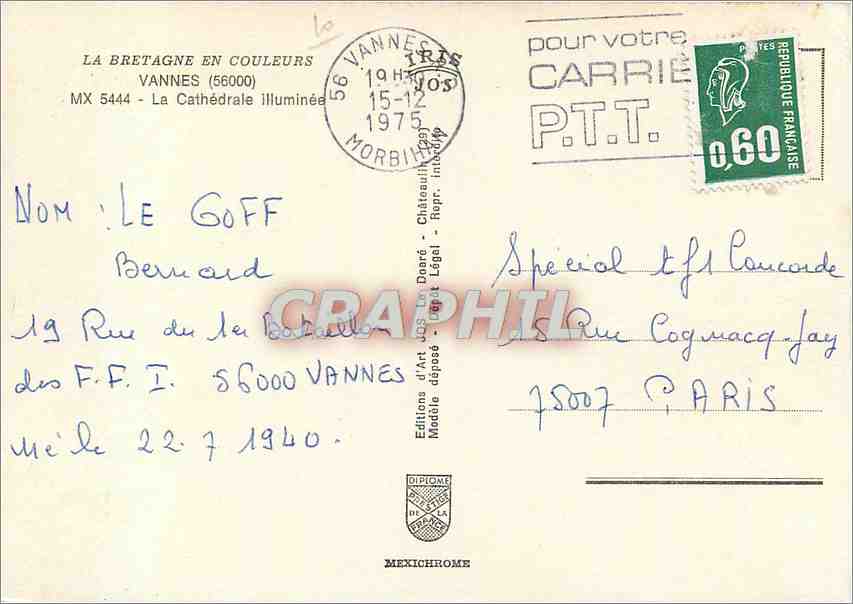 LA BRETAGNE EN COULEURS
VANNES (56000)
MX 5444 - La Cathédrale illuminée
IRIS
JOS
56 VANNES
19 H30
15-12
1975
MORBIHAN
pour votre
CARRIE
P.T.T.
POSTES
REPUBLIQUE FRANÇAISE
0,60
NOM : LE GOFF
Bernard
19 Rue du 1er Bataillon
des F.F.I. 56000 VANNES
Né le 22.7 1940.
Editions d'Art JOS Le Doaré - Châteaulin (29)
Modèle déposé - Dépôt Légal - Repr. interdite
CPARPHIL
Spécial tf1 Concorde
15 Rue Cognacq-Jay
75007 PARIS
DIPLOME
PRESTIGE
DE LA
FRANCE
MEXICHROME